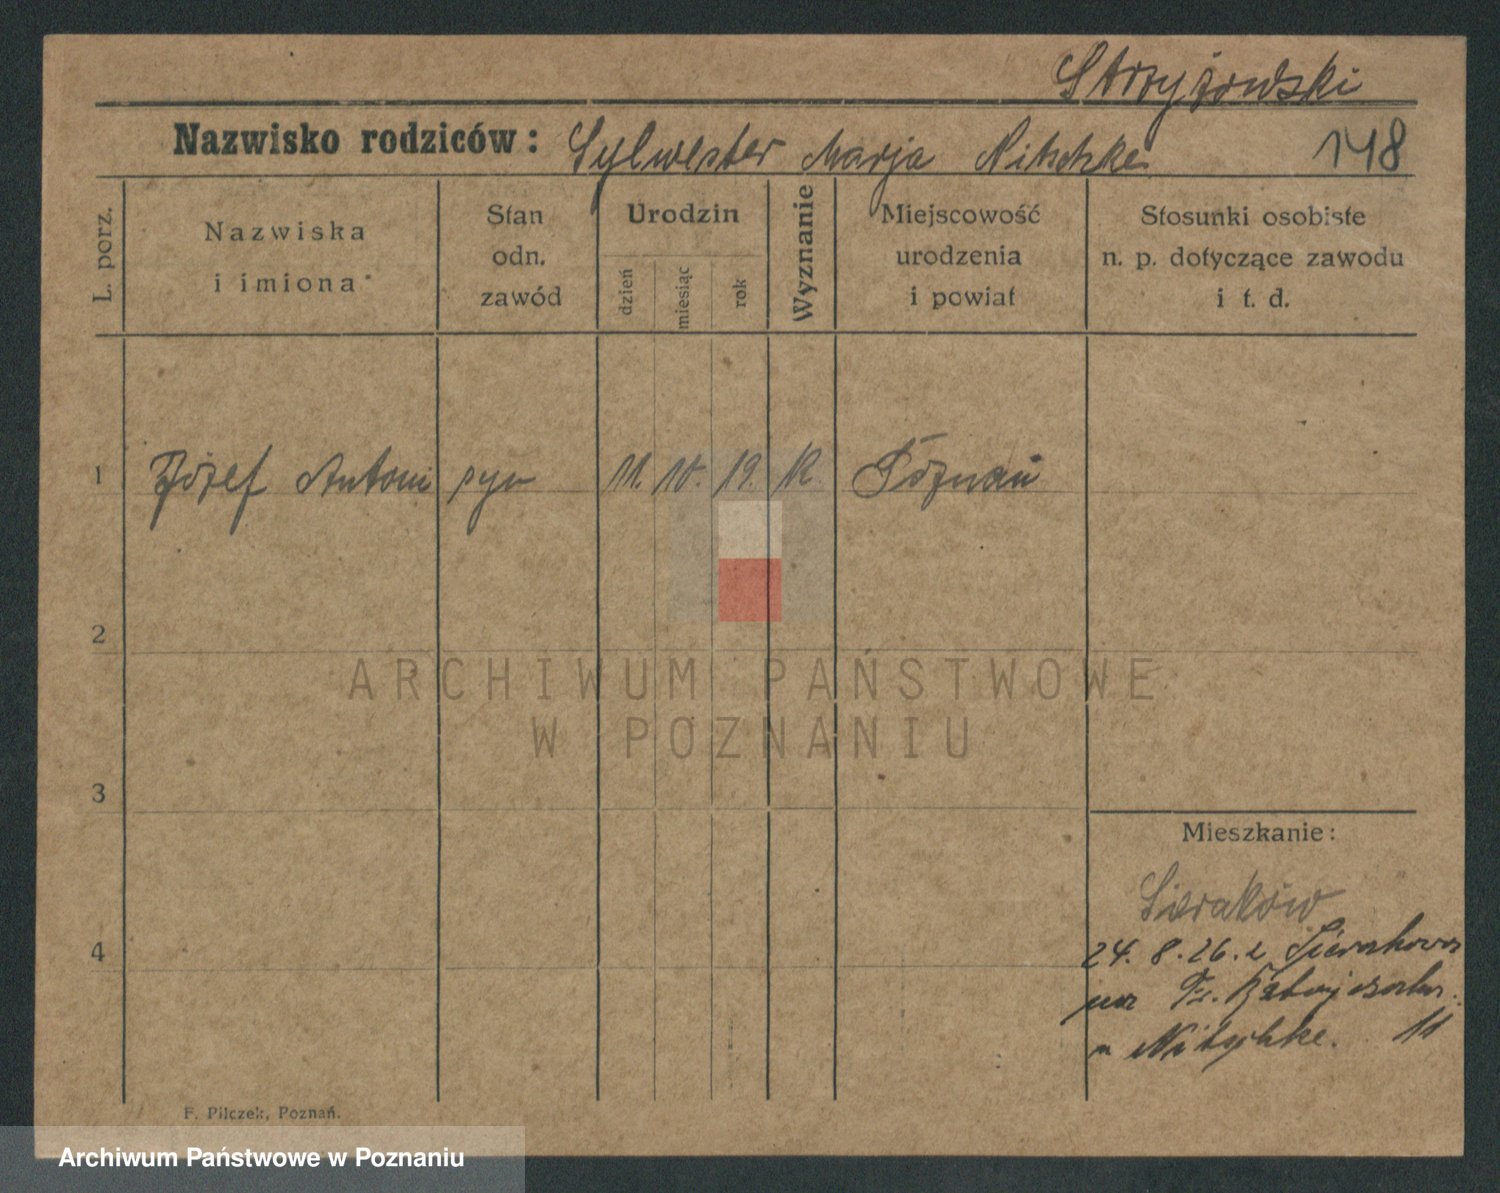 Strzyżowski
Nazwisko rodziców: Sylwester Marja Nitschke 148
L. porz.
Nazwiska
i imiona
Stan
odn.
zawód
Urodzin
dzień
miesiąc
rok
Wyznanie
Miejscowość
urodzenia
i powiat
Stosunki osobiste
n. p. dotyczące zawodu
i t. d.
1 Józef Antoni syn 11. 10. 19. k. Poznań
2
3
4
ARCHIWUM PAŃSTWOWE
W POZNANIU
Mieszkanie:
Sieraków
24. 8. 26. z Sierakowa
na
Nitschke. 11
F. Pilczek, Poznań.
Archiwum Państwowe w Poznaniu